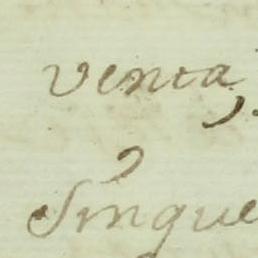 venta,
Sinque